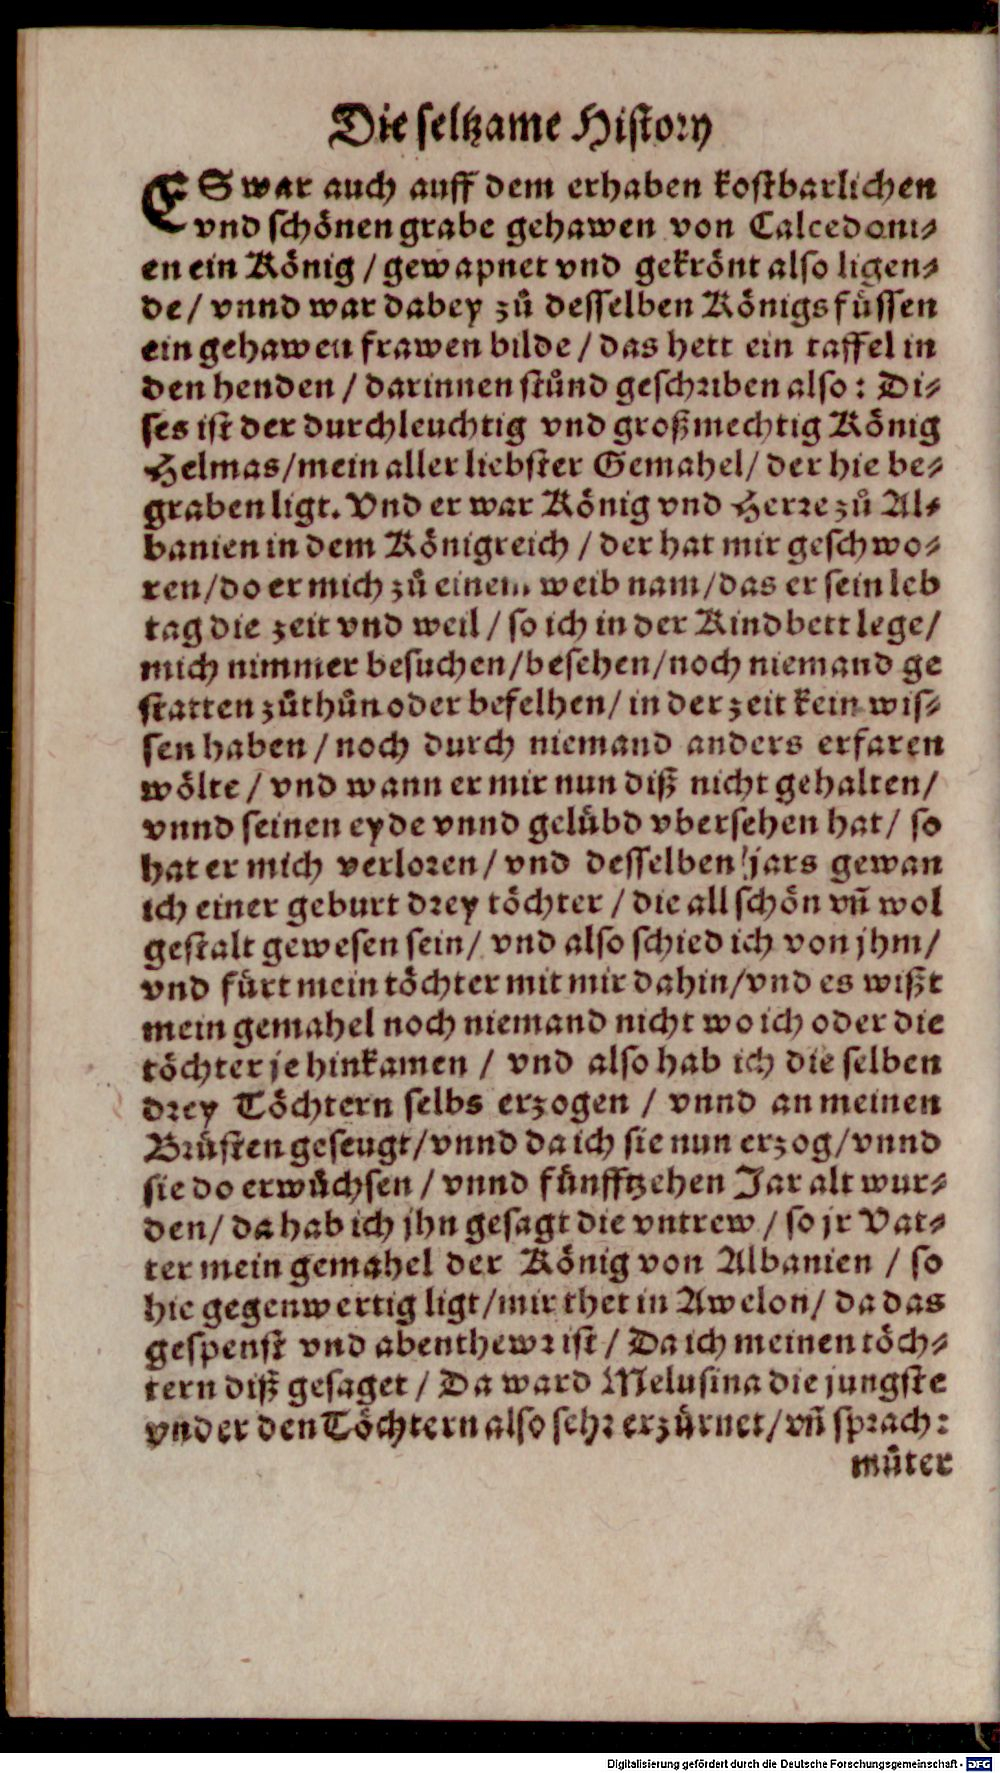 Die seltzame History
ES war auch auff dem erhaben kostbarlichen
vnd schönen grabe gehawen von Calcedoni⸗
en ein König / gewapnet vnd gekrönt also ligen⸗
de / vnnd war dabey zů desselben Königs füssen
ein gehawen frawen bilde / das hett ein taffel in
den henden / darinnen stůnd geschriben also: Di⸗
ses ist der durchleuchtig vnd großmechtig König
Helmas/mein aller liebster Gemahel/ der hie be⸗
graben ligt. Vnd er war König vnd Herre zů Al⸗
banien in dem Königreich / der hat mir geschwo⸗
ren/do er mich zů einem weib nam/das er sein leb
tag die zeit vnd weil / so ich in der Kindbett lege/
mich nimmer besuchen/besehen/noch niemand ge
statten zůthůn oder befelhen/ in der zeit kein wis⸗
sen haben / noch durch niemand anders erfaren
wölte / vnd wann er mir nun diß nicht gehalten/
vnnd seinen eyde vnnd gelübd vbersehen hat/ so
hat er mich verloren/ vnd desselben jars gewan
ich einer geburt drey töchter / die all schön vñ wol
gestalt gewesen sein/ vnd also schied ich von jhm/
vnd fürt mein töchter mit mir dahin/vnd es wißt
mein gemahel noch niemand nicht wo ich oder die
töchter je hinkamen / vnd also hab ich die selben
drey Töchtern selbs erzogen / vnnd an meinen
Brüsten geseugt/vnnd da ich sie nun erzog/vnnd
sie do erwůchsen / vnnd fünfftzehen Jar alt wur⸗
den/ da hab ich jhn gesagt die vntrew / so jr Vat⸗
ter mein gemahel der König von Albanien / so
hie gegenwertig ligt/mir thet in Awelon/ da das
gespenst vnd abenthewr ist / Da ich meinen töch⸗
tern diß gesaget / Da ward Melusina die jungste
vnder den Töchtern also sehr erzürnet/vñ sprach:
můter
Digitalisierung gefördert durch die Deutsche Forschungsgemeinschaft - DFG